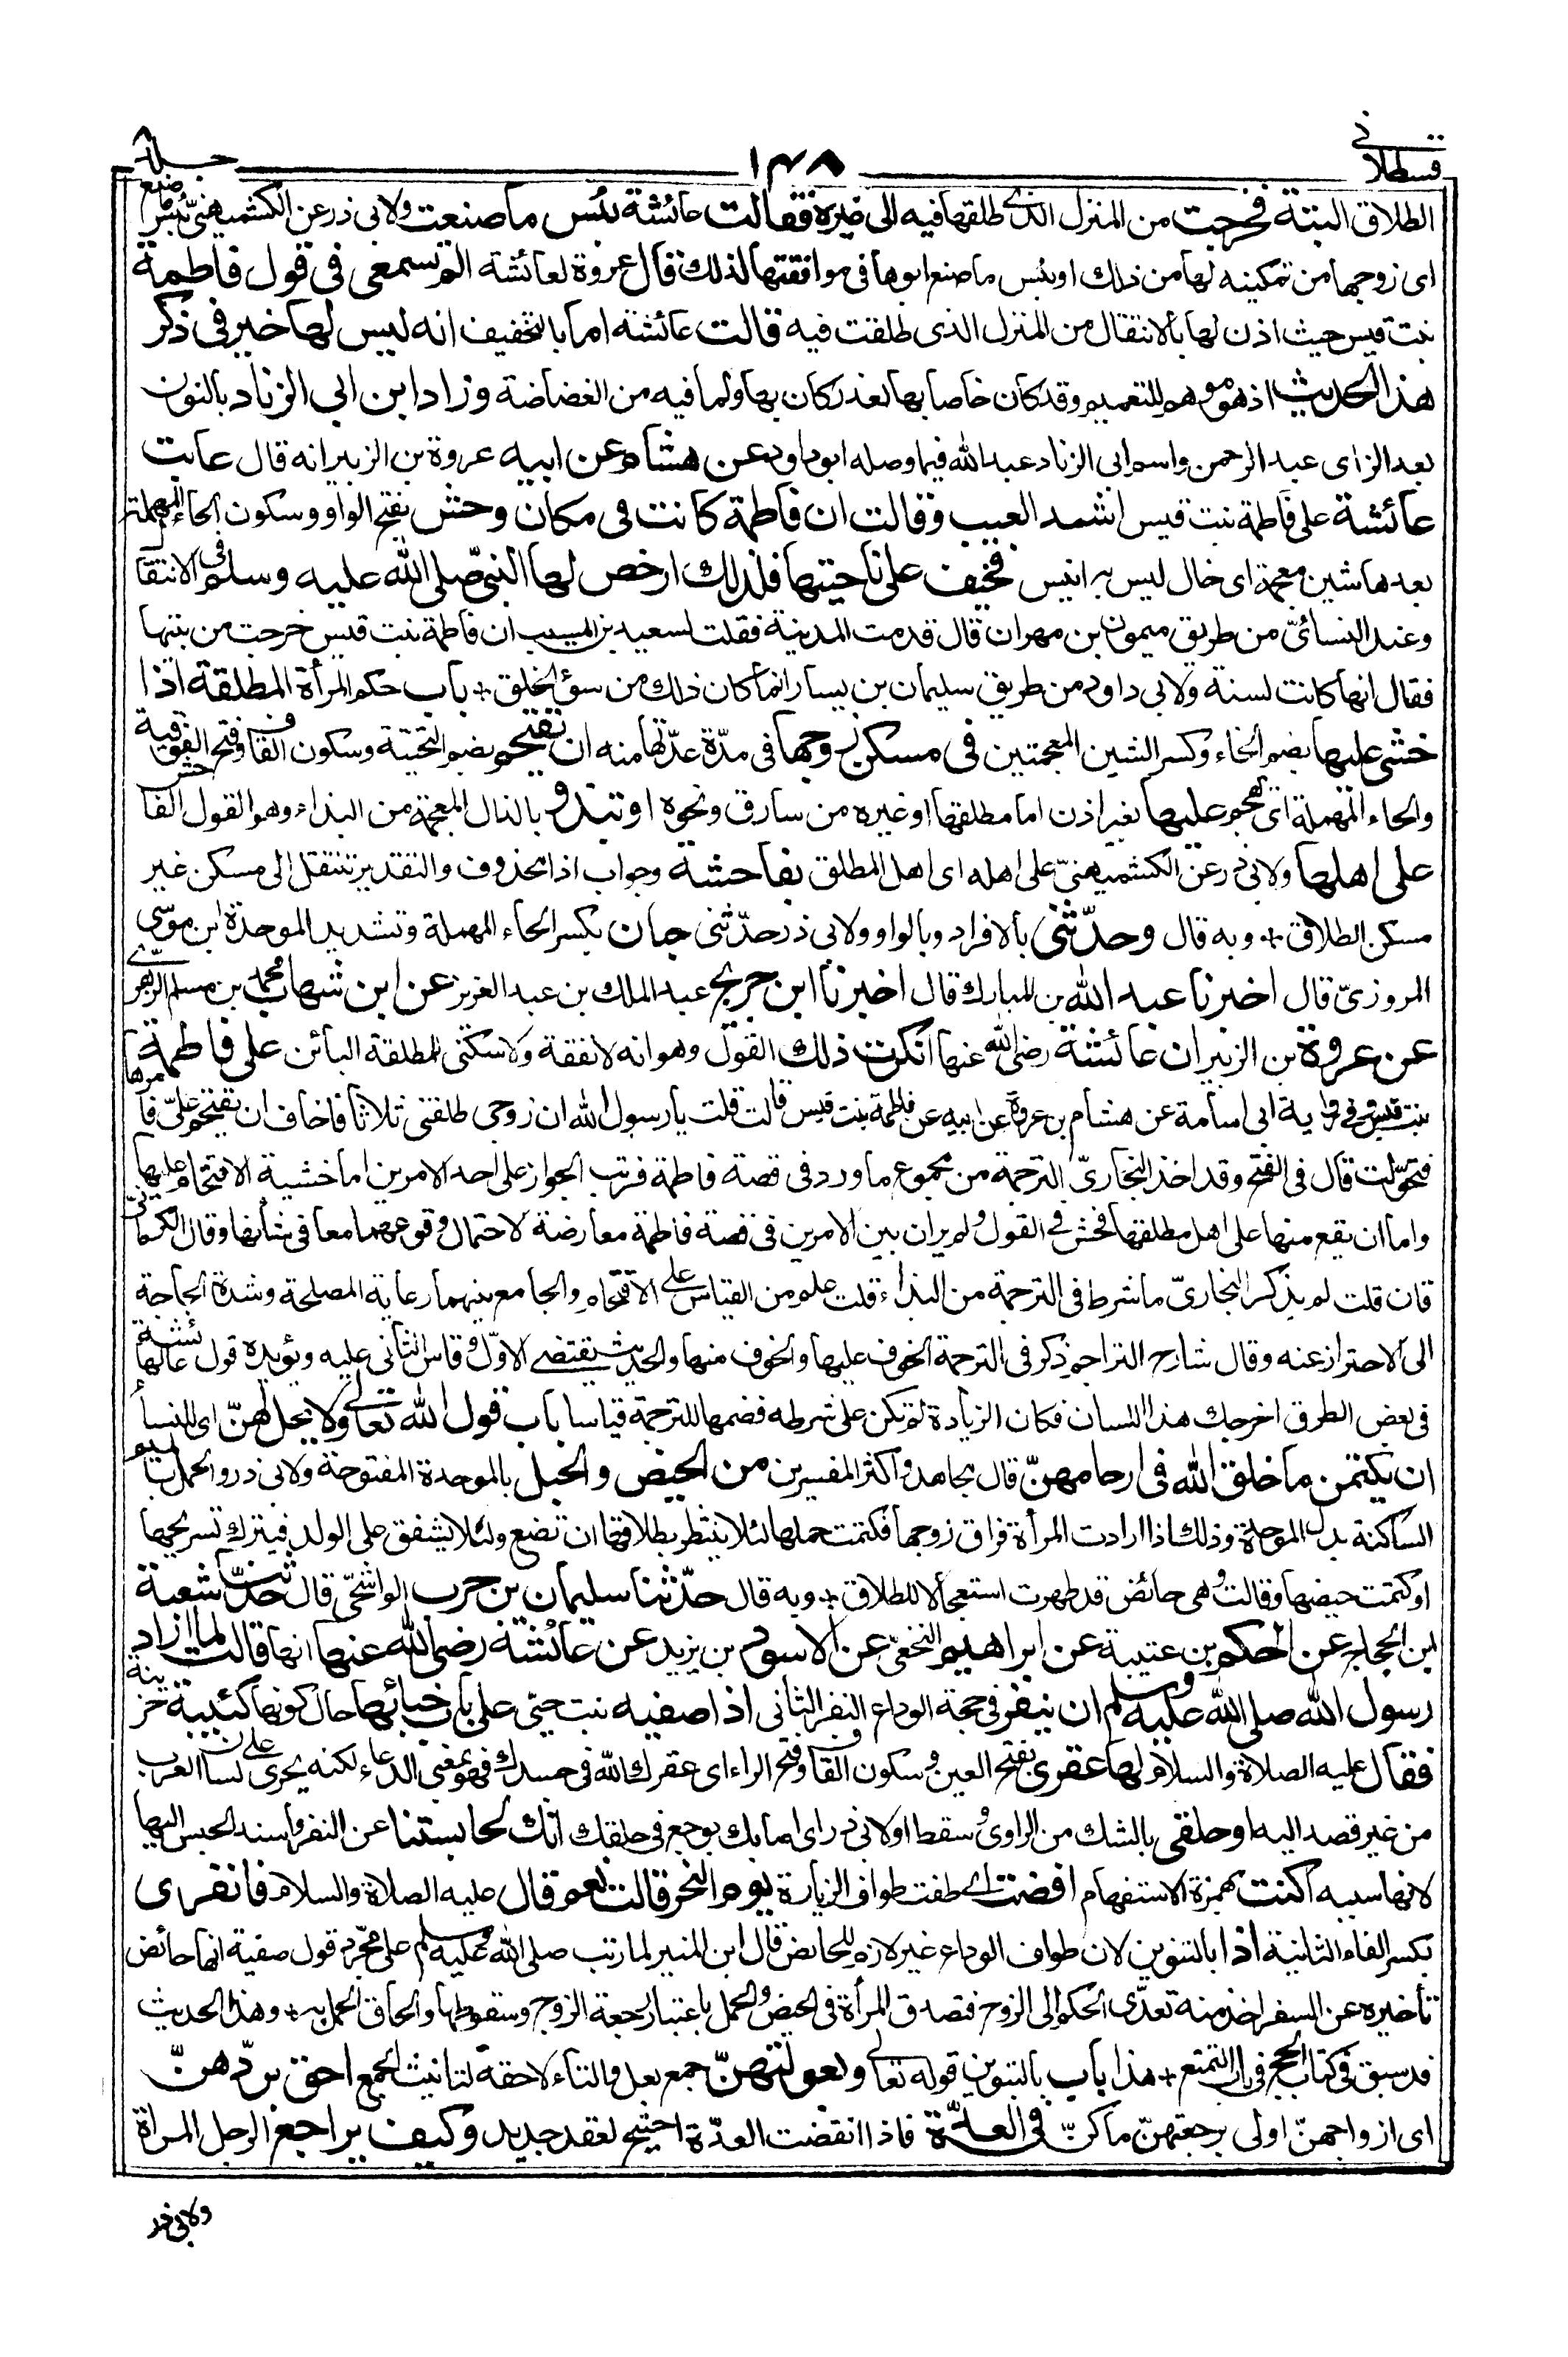 قسطلانی
۱۴۸
جلد ۸
الطلاق البتة فخرجت من المنزل الذی طلقها فیه الی غیره فقالت عائشة بئس ما صنعت ولابی ذر عن الکشمیهنیّ بئس ما صنع
ای زوجها من تمکینه لها من ذلك او بئس ما صنع ابوها فی موافقتها لذلك قال عروة لعائشة الم تسمعی فی قول فاطمة
بنت قیس حیث اذن لها بالانتقال من المنزل الذی طلقت فیه قالت عائشة اما بالتخفیف انه لیس لها خیر فی ذکر
هذا الحدیث اذ هو موهم للتعمیم وقد کان خاصا بها لعذر کان بها ولما فیه من الغضاضة وزاد ابن ابی الزناد بالنون
بعد الزای عبد الرحمن واسم ابی الزناد عبد الله فیما وصله ابو داود عن هشام عن ابیه عروة بن الزبیر انه قال عابت
عائشة علی فاطمة بنت قیس اشد العیب وقالت ان فاطمة کانت فی مکان وحش بفتح الواو وسکون الحاء المهملة
بعدها شین معجمة ای خال لیس به انیس فخیف علی ناحیتها فلذلك ارخص لها النبیّ صلی الله علیه وسلم فی الانتقال
وعند النسائیّ من طریق میمون بن مهران قال قدمت المدینة فقلت لسعید بن المسیب ان فاطمة بنت قیس خرجت من بیتها
فقال انها کانت لسنة ولابی داود من طریق سلیمان بن یسار انما کان ذلك من سوء الخلق + باب حکم المرأة المطلقة اذا
خشی علیها بضم الخاء وکسر الشین المعجمتین فی مسکن زوجها فی مدّة عدّتها منه ان یقتحم بضم التحتیة وسکون القاف وفتح الفوقیة
والحاء المهملة ای یهجم علیها بغیر اذن اما مطلقها او غیره من سارق ونحوه او تبذو بالذال المعجمة من البذاء وهو القول الفاحش
علی اهلها ولابی ذر عن الکشمیهنیّ علی اهله ای اهل المطلق بفاحشة وجواب اذا محذوف والتقدیر تنتقل الی مسکن غیر
مسکن الطلاق + وبه قال وحدّثنی بالافراد وبالواو ولابی ذر حدّثنی حبان بکسر الحاء المهملة وتشدید الموحدة ابن موسی
المروزیّ قال اخبرنا عبد الله بن المبارك قال اخبرنا ابن جریج عبد الملك بن عبد العزیز عن ابن شهاب محمد بن مسلم الزهری
عن عروة بن الزبیر ان عائشة رضی الله عنها انکرت ذلك القول وهو انه لا نفقة ولا سکنی للمطلقة البائن علی فاطمة
بنت قیس وفی روایة ابی اسامة عن هشام بن عروة عن ابیه عن فاطمة بنت قیس قالت قلت یا رسول الله ان زوجی طلقنی ثلاثا فاخاف ان یقتحم علیّ فامرها
فتحوّلت قال فی الفتح وقد اخذ البخاریّ الترجمة من مجموع ما ورد فی قصة فاطمة فرتب الجواز علی احد الامرین اما خشیة الاقتحام علیها
واما ان یقع منها علی اهل مطلقها فحش فی القول ولم یر ان بین الامرین فی قصة فاطمة معارضة لاحتمال وقوعهما معا فی شأنها وقال الکرمانیّ
فان قلت لم یذکر البخاریّ ما شرط فی الترجمة من البذاء قلت علم من القیاس علی الاقتحام والجامع بینهما رعایة المصلحة وشدة الحاجة
الی الاحتراز عنه وقال شارح التراجم ذکر فی الترجمة الخوف علیها والخوف منها والحدیث یقتضی الاوّل وقاس الثانی علیه ویؤیده قول عائشة لها
فی بعض الطرق اخرجك هذا اللسان فکان الزیادة لم تکن علی شرطه فضمها للترجمة قیاسا باب قول الله تعالی ولا یحل لهنّ ای للنساء
ان یکتمن ما خلق الله فی ارحامهنّ قال مجاهد واکثر المفسرین من الحیض والحبل بالموحدة المفتوحة ولابی ذر والحمل بالمیم
الساکنة بدل الموحدة وذلك اذا ارادت المرأة فراق زوجها فکتمت حملها لئلا ینتظر بطلاقها ان تضع ولئلا یشفق علی الولد فیترك تسریحها
او کتمت حیضها وقالت وهی حائض قد طهرت استعجالا للطلاق + وبه قال حدّثنا سلیمان بن حرب الواشحیّ قال حدّثنا شعبة
ابن الحجاج عن الحکم بن عتیبة عن ابراهیم النخعیّ عن الاسود بن یزید عن عائشة رضی الله عنها انها قالت لما اراد
رسول الله صلی الله علیه وسلم ان ینفر فی حجة الوداع النفر الثانی اذا صفیه بنت حیی علی باب خبائها حال کونها کئیبة حزینة
فقال علیه الصلاة والسلام لها عقری بفتح العین وسکون القاف وفتح الراء ای عقرك الله فی جسدك فهو بمعنی الدعاء لکنه یجری علی لسان العرب
من غیر قصد الیه او حلقی بالشك من الراوی وسقط او لابی ذر ای اصابك بوجع فی حلقك انك لحابستنا عن النفر واسند الحبس الیها
لانها سببه اکنت بهمزة الاستفهام افضت ای طفت طواف الزیارة یوم النحر قالت نعم قال علیه الصلاة والسلام فانفری
بکسر الفاء الثانیة اذا بالتنوین لان طواف الوداع غیر لازم للحائض قال ابن المنیر لما رتب صلی الله علیه وسلم علی مجرد قول صفیة انها حائض
تأخیره عن السفر اخذ منه تعدّی الحکم الی الزوج فتصدق المرأة فی الحیض والحمل باعتبار رجعة الزوج وسقوطها والحاق الحمل به + وهذا الحدیث
قد سبق فی کتاب الحج فی باب التمتع + هذا باب بالتنوین قوله تعالی وبعولتهنّ جمع بعل والتاء لاحقة لتانیث الجمع احق بردّهنّ
ای ازواجهنّ اولی برجعتهنّ ما کنّ فی العدّة فاذا انقضت العدّة احتیج لعقد جدید وکیف یراجع الرجل المرأة
ولابی ذر